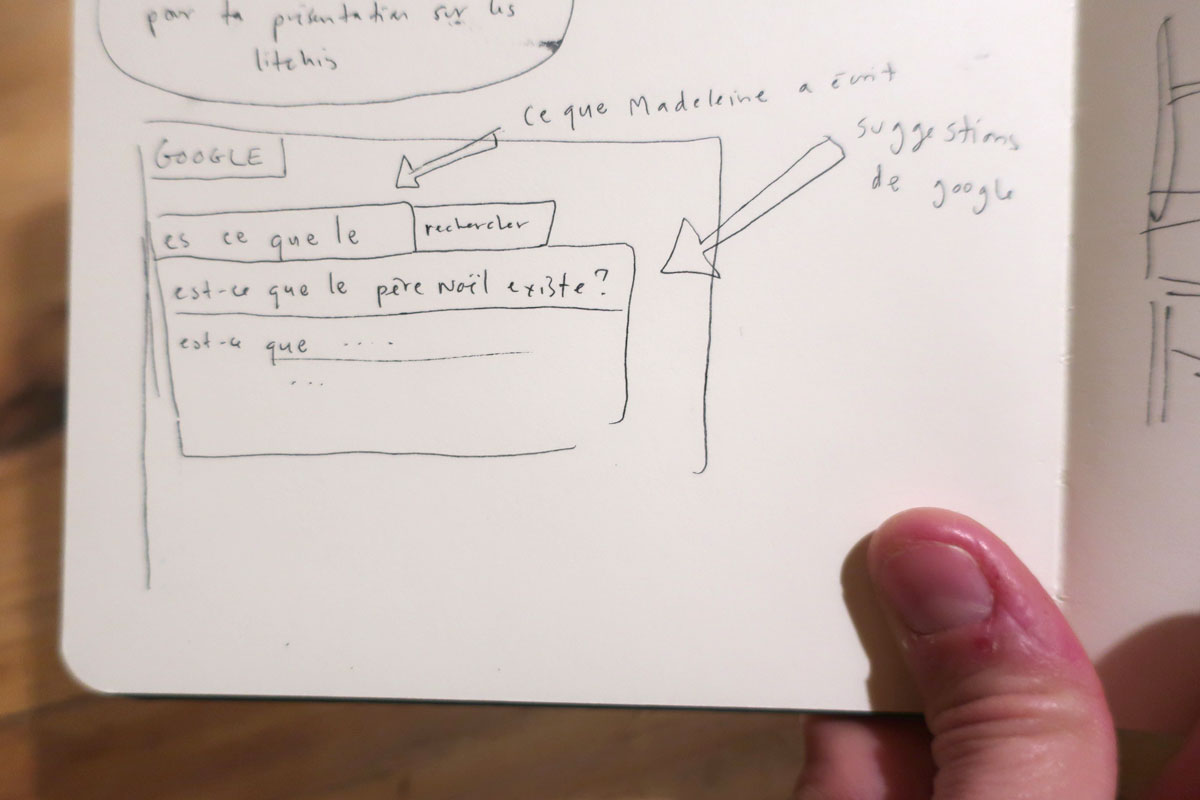 pour ta présentation sur les
litchis
ce que Madeleine a écrit
suggestions
de google
GOOGLE
es ce que le
rechercher
est-ce que le père Noël existe?
est-ce que ....
...